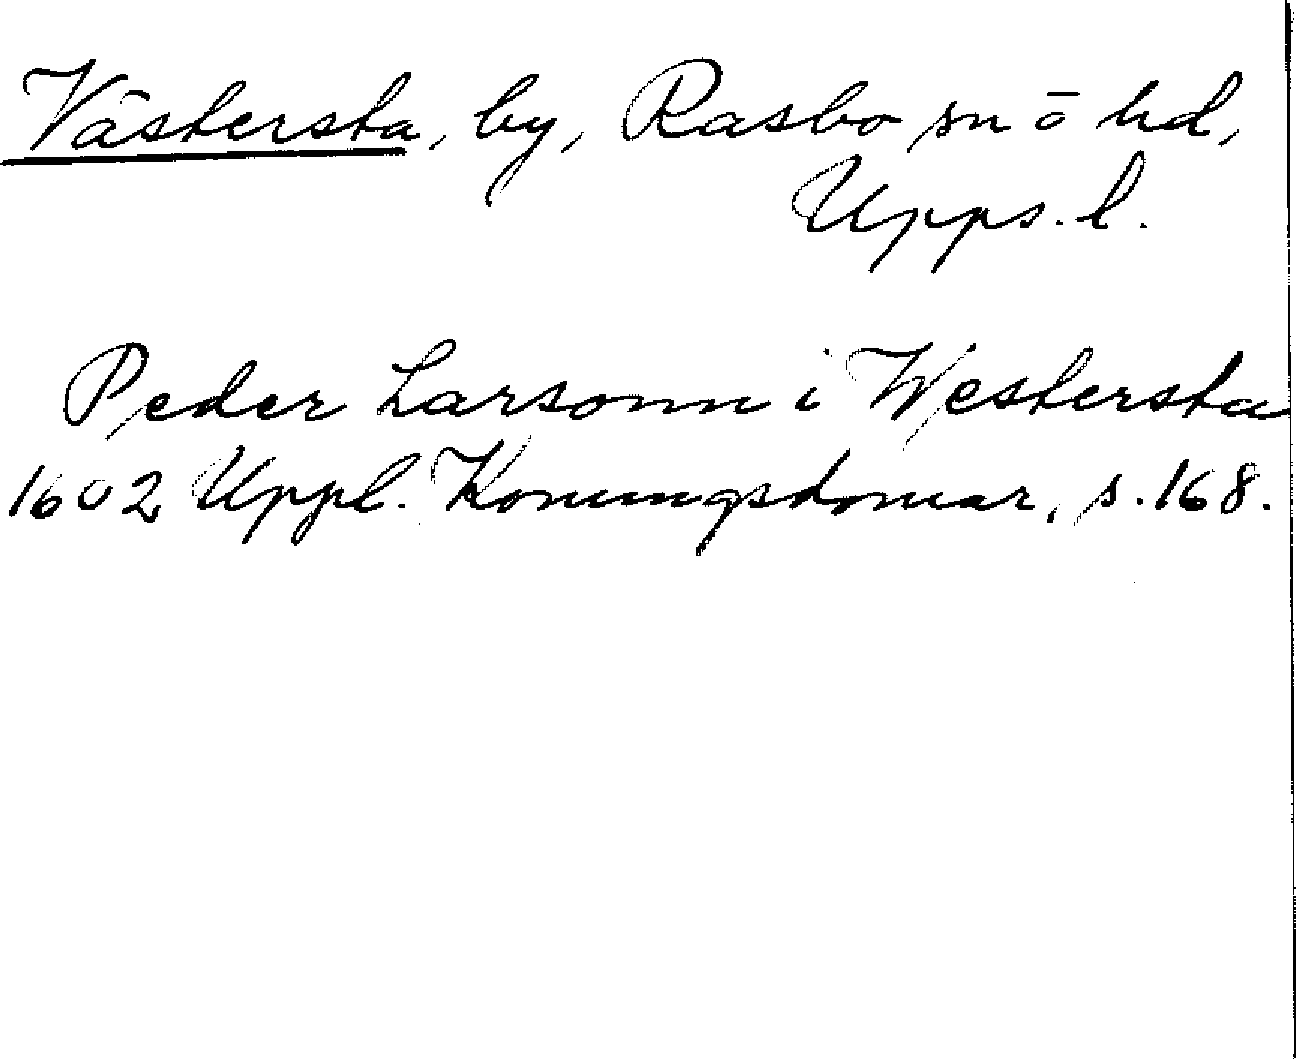 Västersta, by, Rasbo sn ō hd,
Upps. l.
Peder Larsonn i Westersta
1602 Uppl. Konungsdomar, s. 168.